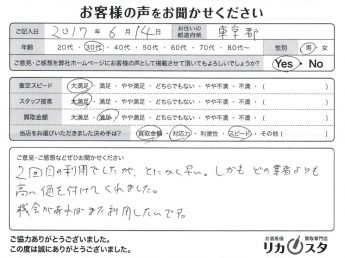 お客様の声をお聞かせください
ご記入日 2017年 6月 14日 お住いの都道府県 東京都
年齢 20代・30代・40代・50代・60代・70代・80代〜 性別 男・女
ご意見・ご感想を弊社ホームページにお客様の声として掲載させて頂いてもよろしいでしょうか? Yes・No
査定スピード 大満足・満足・やや満足・どちらでもない・やや不満・不満・( )
スタッフ接客 大満足・満足・やや満足・どちらでもない・やや不満・不満・( )
買取金額 大満足・満足・やや満足・どちらでもない・やや不満・不満・( )
当店をお選びいただきました決め手は? 買取金額・対応力・利便性・スピード・その他( )
ご意見・ご感想などぜひお聞かせください
2回目の利用でしたが、とにかく早い。しかも どの業者よりも
高い値を付けてくれました。
機会があればまた利用したいです。
ご協力ありがとうございました。
この度は誠にありがとうございました。
お酒高価 買取専門店
リカスタ